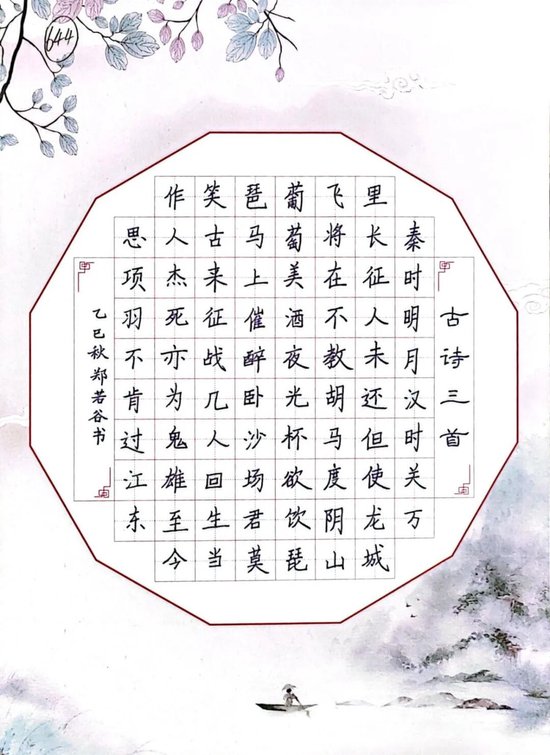 644
古诗三首
秦时明月汉时关万
里长征人未还但使龙城
飞将在不教胡马度阴山
葡萄美酒夜光杯欲饮琵
琶马上催醉卧沙场君莫
笑古来征战几人回生当
作人杰死亦为鬼雄至今
思项羽不肯过江东
乙巳秋郑若谷书